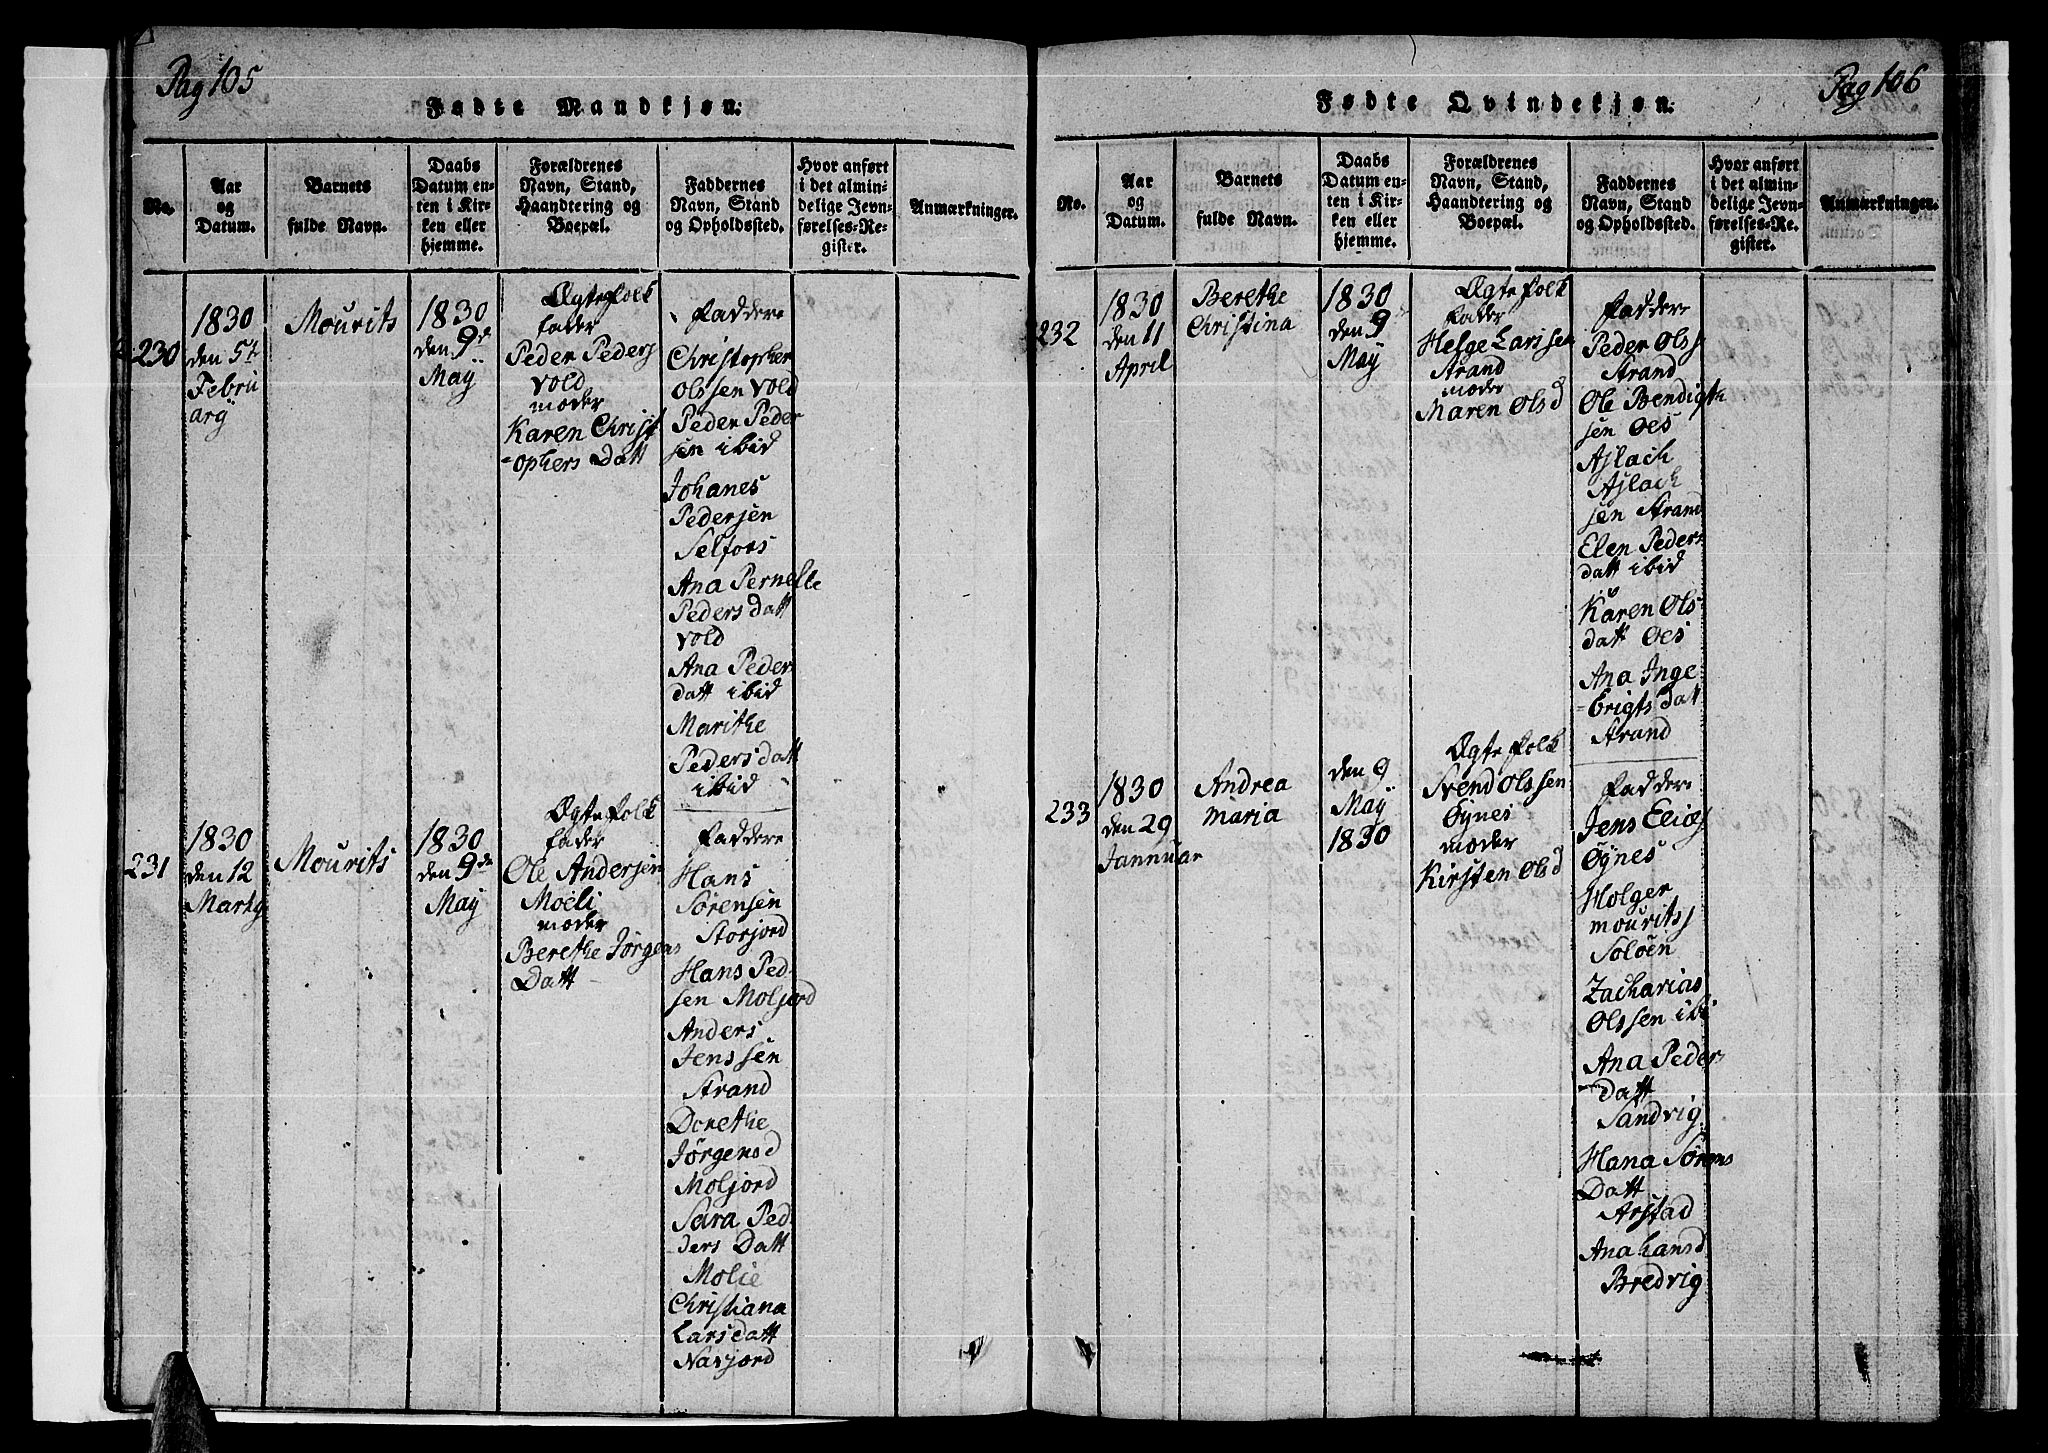 Pag 105
Fødte Mandkjøn.
No.
Aar
og
Datum.
Barnets
fulde Navn.
Daabs
Datum en-
ten i Kir-
ken eller
hjemme.
Forældrenes
Navn, Stand,
Haandtering og
Boepæl.
Faddernes
Navn, Stand
og Opholdssted.
Hvor anført
i det almin-
delige Jevn-
førelses-Re-
gister.
Anmærkninger.
230
1830
den 5t
Febru
ary
Mourits
1830
den 9d
May
Ægte folk
fader
Peder Peders
Vold
moder
Karen Christ
-ophers Datt
Faddere
Christopher
Olssen Vold
Peder Peder
sen ibid
Johanes
Pedersen
Selfors
Ana Pernelle
Peders datt
Vold
Ana Peder
datt ibid
Marithe
Pedersdatt
ibid
231
1830
den 12
Marty
Mourits
1830
den 9de
May
Ægte folk
fader
Ole Andersen
Moeli
moder
Berethe Jørgens
Datt
Faddere
Hans
Sørensen
Storjord
Hans Ped
sen Moljord
Anders
Jenssen
Strand
Dorethe
Jørgensd
Moljord
Sara Ped
-ders Datt
Molie
Christiana
Larsdatt
Navjord
Pag 106
Fødte Qvindekjøn.
No.
Aar
og
Datum.
Barnets
fulde Navn.
Daabs
Datum en-
ten i Kir-
ken eller
hjemme.
Forældrenes
Navn, Stand,
Haandtering og
Boepæl.
Faddernes
Navn, Stand
og Opholdssted.
Hvor anført
i det almin-
delige Jevn-
førelses-Re-
gister.
Anmærkninger.
232
1830
den 11
April
Berethe
Christina
1830
den 9
May
Ægte folk
fader
Helge Larssen
Strand
moder
Maren Olsd
Faddere
Peder Olss
Strand
Ole Bendigth
sen Oes
Aslach
Aslach
sen Strand
Elen Peders
datt ibid
Karen Ols
datt Oes
Ana Inge
-Erigts datt
Strand
233
1830
den 29
Jannuar
Andrea
Maria
den 9
May
1830
Ægte folk
Svend Olssen
Øynes
moder
Kirsten Olsd
Faddere
Jens Elias
Øynes
Holger
mouritss
Soløen
Zacharias
Olssen ibi
Ana Peder
Datt
Sandvig
Hana Sørens
Datt
Arstad
Ana Hansd
Bredvig